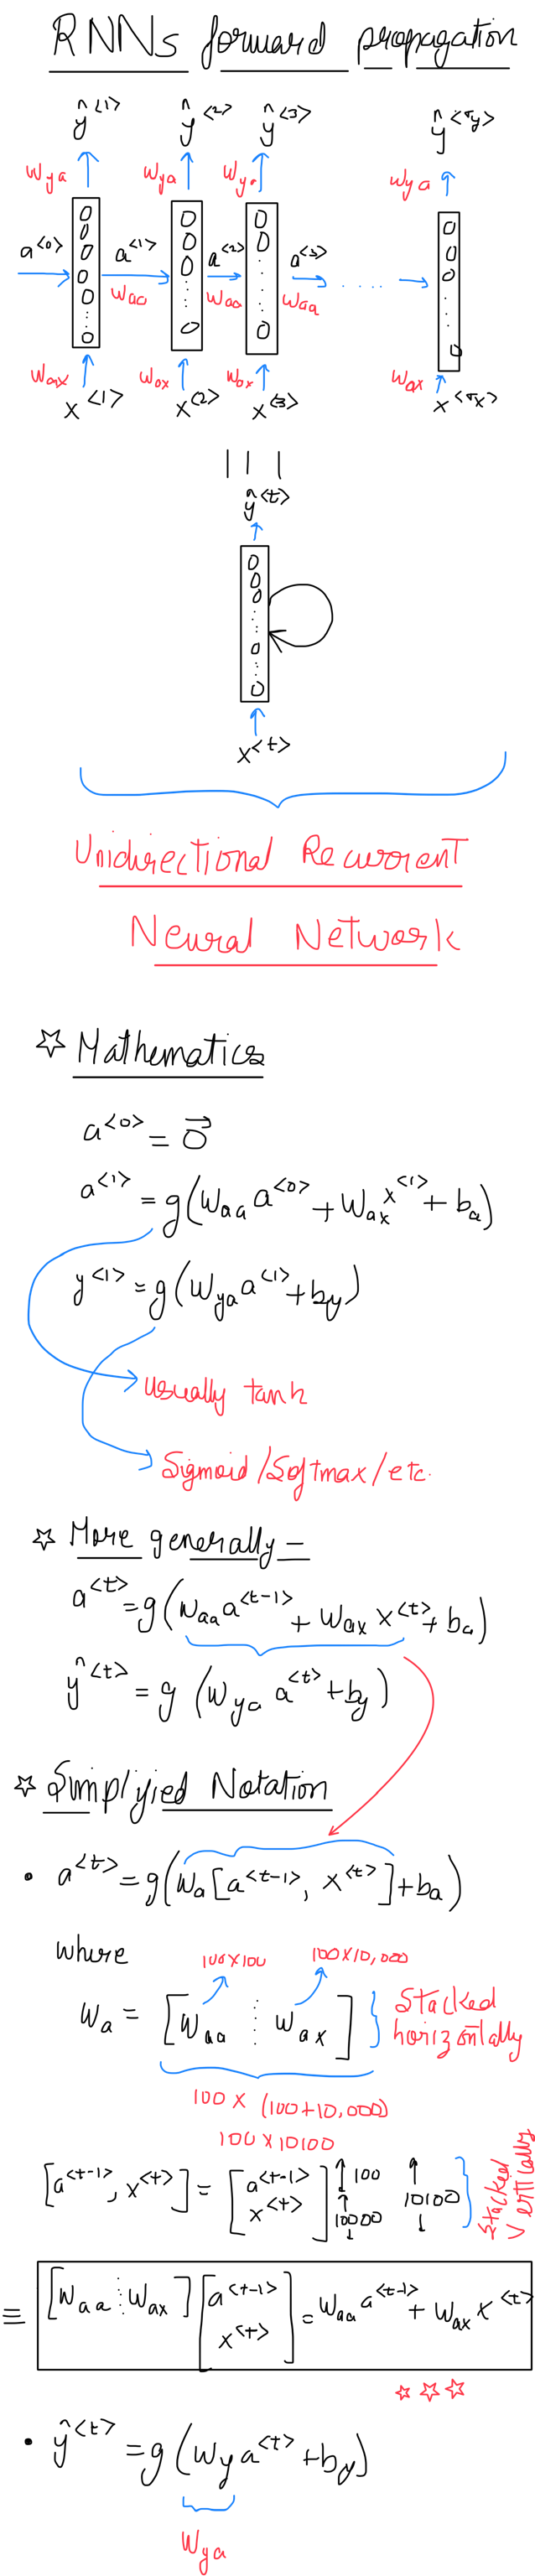 RNNs forward propagation
ŷ<1> ŷ<2> ŷ<3> ŷ<Ty>
Wya Wya Wya Wya
a<0> a<1> a<2> a<3> .....
Waa Waa Waa
Wax Wax Wax Wax
x<1> x<2> x<3> x<Tx>
| | |
ŷ<t>
x<t>
Unidirectional Recurrent
Neural Network
☆ Mathematics
a<0> = 0⃗
a<1> = g(Waa a<0> + Wax x<1> + ba)
y<1> = g(Wya a<1> + by)
usually tanh
Sigmoid/Softmax/etc.
☆ More generally -
a<t> = g(Waa a<t-1> + Wax x<t> + ba)
ŷ<t> = g (Wya a<t> + by)
☆ Simplyied Notation
• a<t> = g(Wa[a<t-1>, x<t>] + ba)
where
100x100 100x10,000
Wa = [Waa ⋮ Wax] } Stacked horizontally
100 x (100+10,000)
100 x 10100
[a<t-1>, x<t>] = [a<t-1> x<t>] ↑100 ↑10000↓ ↑10100↓ } Stacked Vertically
≡ [Waa ⋮ Wax] [a<t-1> x<t>] = Waa a<t-1> + Wax x<t>
☆☆☆
• ŷ<t> = g (Wy a<t> + by)
Wya